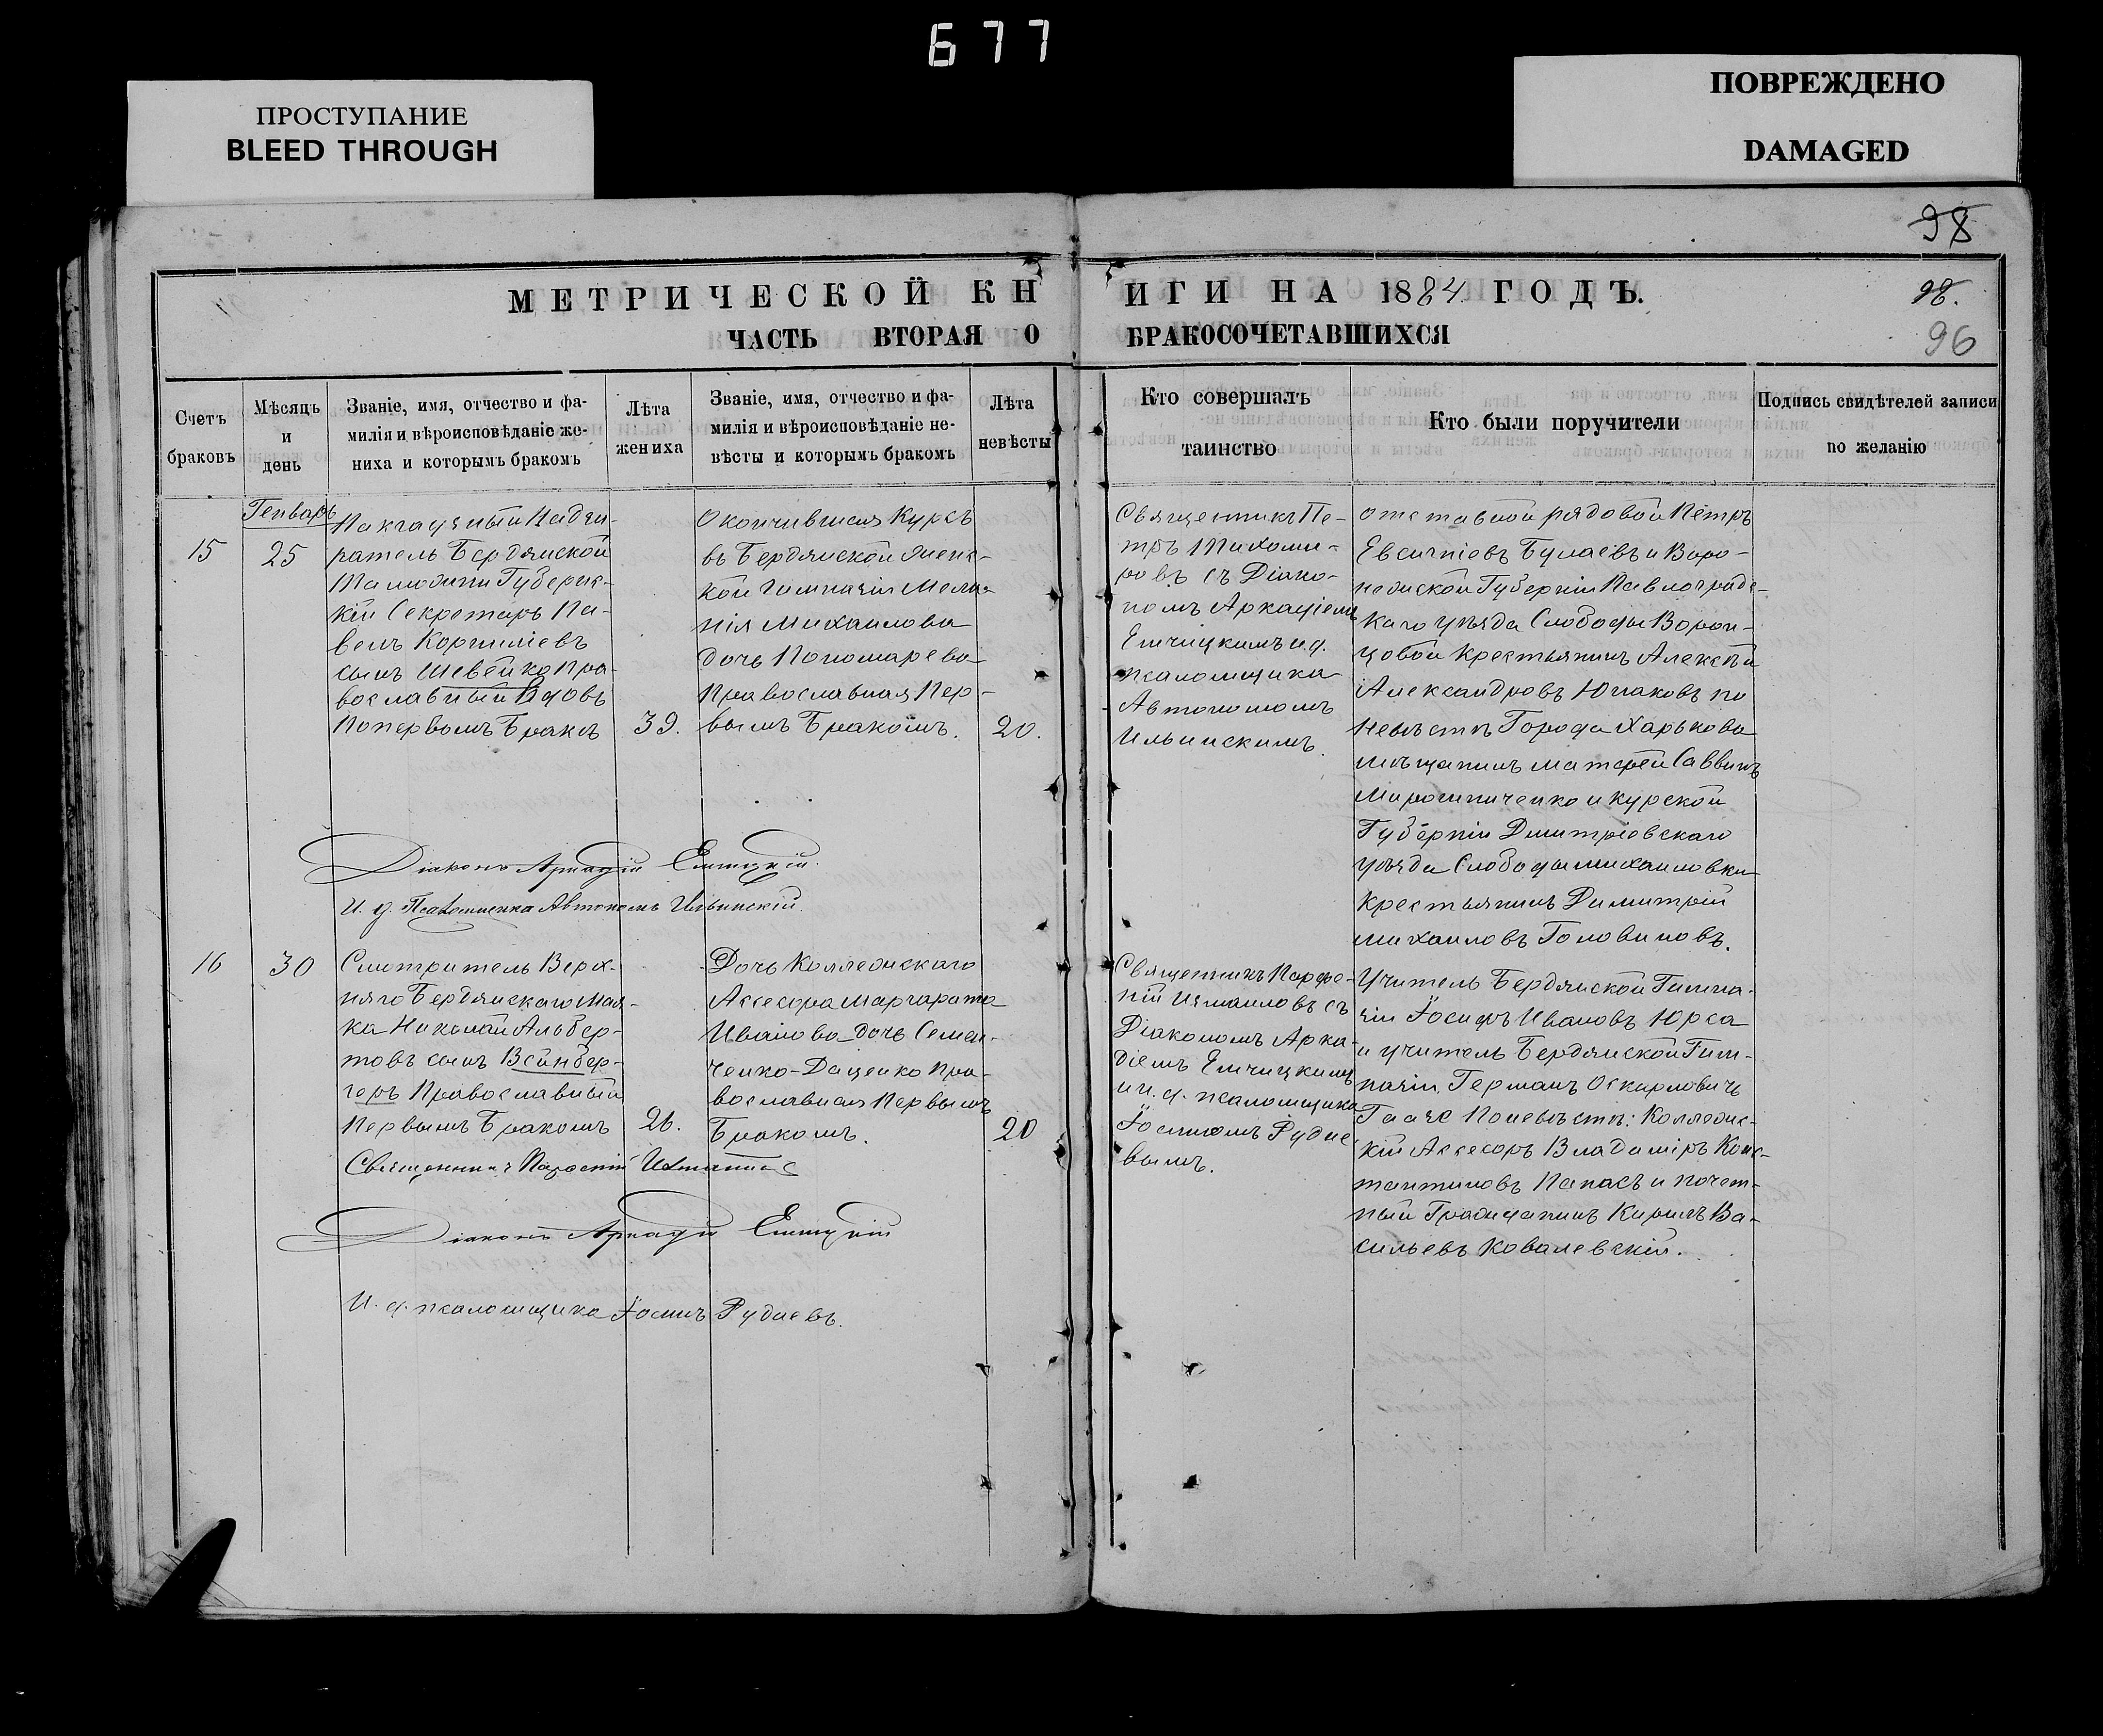 677
ПРОСТУПАНИЕ
BLEED THROUGH
ПОВРЕЖДЕНО
DAMAGED
98
МЕТРИЧЕСКОЙ КНИГИ НА 1884 ГОДЪ.
98.
ЧАСТЬ ВТОРАЯ О БРАКОСОЧЕТАВШИХСЯ
96
Счетъ
браковъ
Мѣсяцъ
и
день
Званіе, имя, отчество и фа-
милія и вѣроисповѣданіе же-
ниха и которымъ бракомъ
Лѣта
жениха
Званіе, имя, отчество и фа-
милія и вѣроисповѣданіе не-
вѣсты и которымъ бракомъ
Лѣта
невѣсты
Кто совершалъ
таинство
Кто были поручители
Подпись свидѣтелей записи
по желанію
15
Генварь
25
Пакгаузный Надзи-
ратель Бердянской
Таможни Губернс-
кій Секретарь Па-
велъ Корниліевъ
сынъ Шевейко Пра-
вославный Вдовъ
По первомъ Бракѣ
39.
Окончившая Курсъ
въ Бердянской Женс-
кой Гимназіи Мела-
нія Михаилова
дочь Пономарева
Православная Пер-
вымъ Бракомъ.
20.
Священникъ Пе-
тръ Тихоми-
ровъ съ Діако-
номъ Аркадіемъ
Емчицкимъ и.д.
псаломщика
Автономомъ
Ильинскимъ.
отставной рядовой Петръ
Евсигніевъ Булаевъ и Воро-
нежской Губерніи Павлоградс-
каго уѣзда Слободы Ворон-
цовой крестьянинъ Алексѣй
Александровъ Юшаковъ по
Невѣстѣ Города Харькова
мѣщанинъ Матфей Саввинъ
Мирошниченко и курской
Губерніи Дмитріевскаго
уѣзда Слободы Михаиловки
крестьянинъ Димитрій
Михаиловъ Головиновъ.
Діаконъ Аркадій Емчицкій.
И. д. Псаломщика Автономъ Ильинскій.
16
30
Смотритель Верх-
няго Бердянскаго Мая-
ка Николай Альбер-
товъ сынъ Вейнбер-
геръ Православный
Первымъ Бракомъ
26.
Дочь Коллежскаго
Ассесора Маргарита
Иванова дочь Семен-
ченко-Даценко Пра-
вославная Первымъ
Бракомъ.
20
Священникъ Парфе-
ній Измаиловъ съ
Діакономъ Арка-
діемъ Емчицкимъ
и и. д. псаломщика
Іосифомъ Рудне-
вымъ.
Учитель Бердянской Гимна-
зіи Іосифъ Ивановъ Юрса
и учитель Бердянской Гим-
назіи, Германъ Оскаровичъ
Гаазе По невѣстѣ: Коллежс-
кій Ассесоръ Владиміръ Конс-
тантиновъ Папасъ и почет-
ный Гражданинъ Кирилъ Ва-
сильевъ Ковалевскій.
Священникъ Парфеній Измаиловъ
Діаконъ Аркадій Емчицкій
И. д. псаломщика Іосифъ Рудневъ.